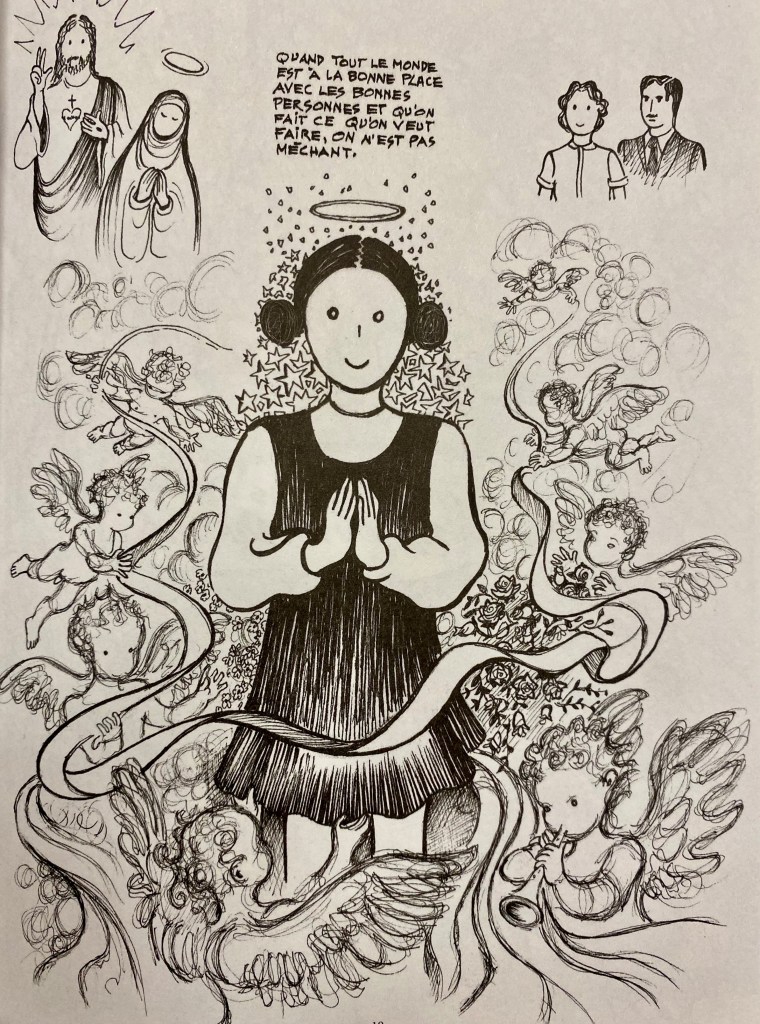 QUAND TOUT LE MONDE
EST À LA BONNE PLACE
AVEC LES BONNES
PERSONNES ET QU'ON
FAIT CE QU'ON VEUT
FAIRE, ON N'EST PAS
MÉCHANT.